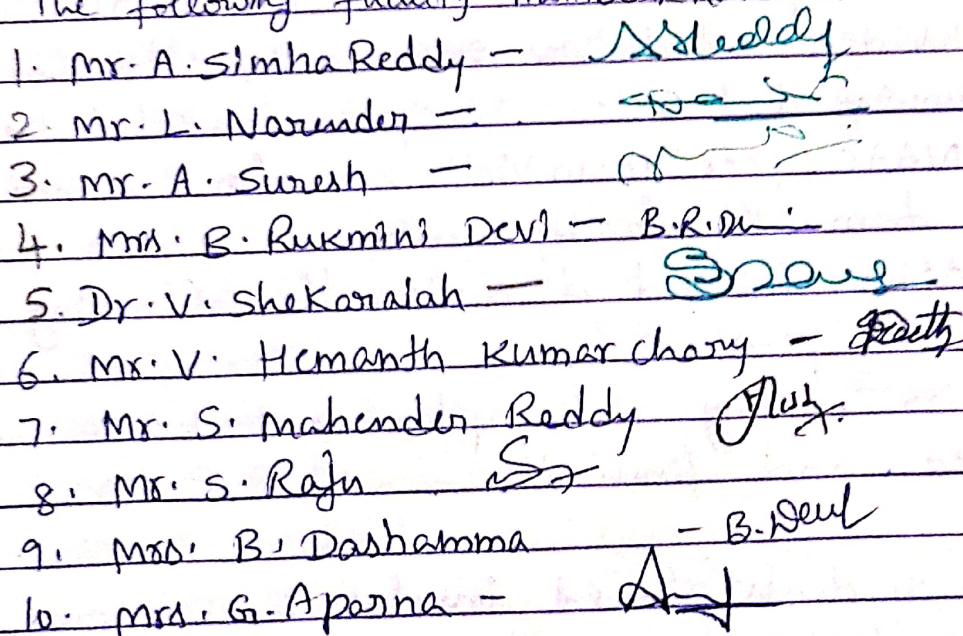 The following faculty
1. Mr. A. Simha Reddy - ASReddy
2. Mr. L. Narender -
3. Mr. A. Suresh -
4. Mrs. B. Rukmini Devi - B.R.Devi
5. Dr. V. Shekaraiah -
6. Mr. V. Hemanth Kumar chary -
7. Mr. S. Mahender Reddy
8. Mr. S. Raju
9. Mrs. B. Dashamma - B.
10. Mrs. G. Aparna -